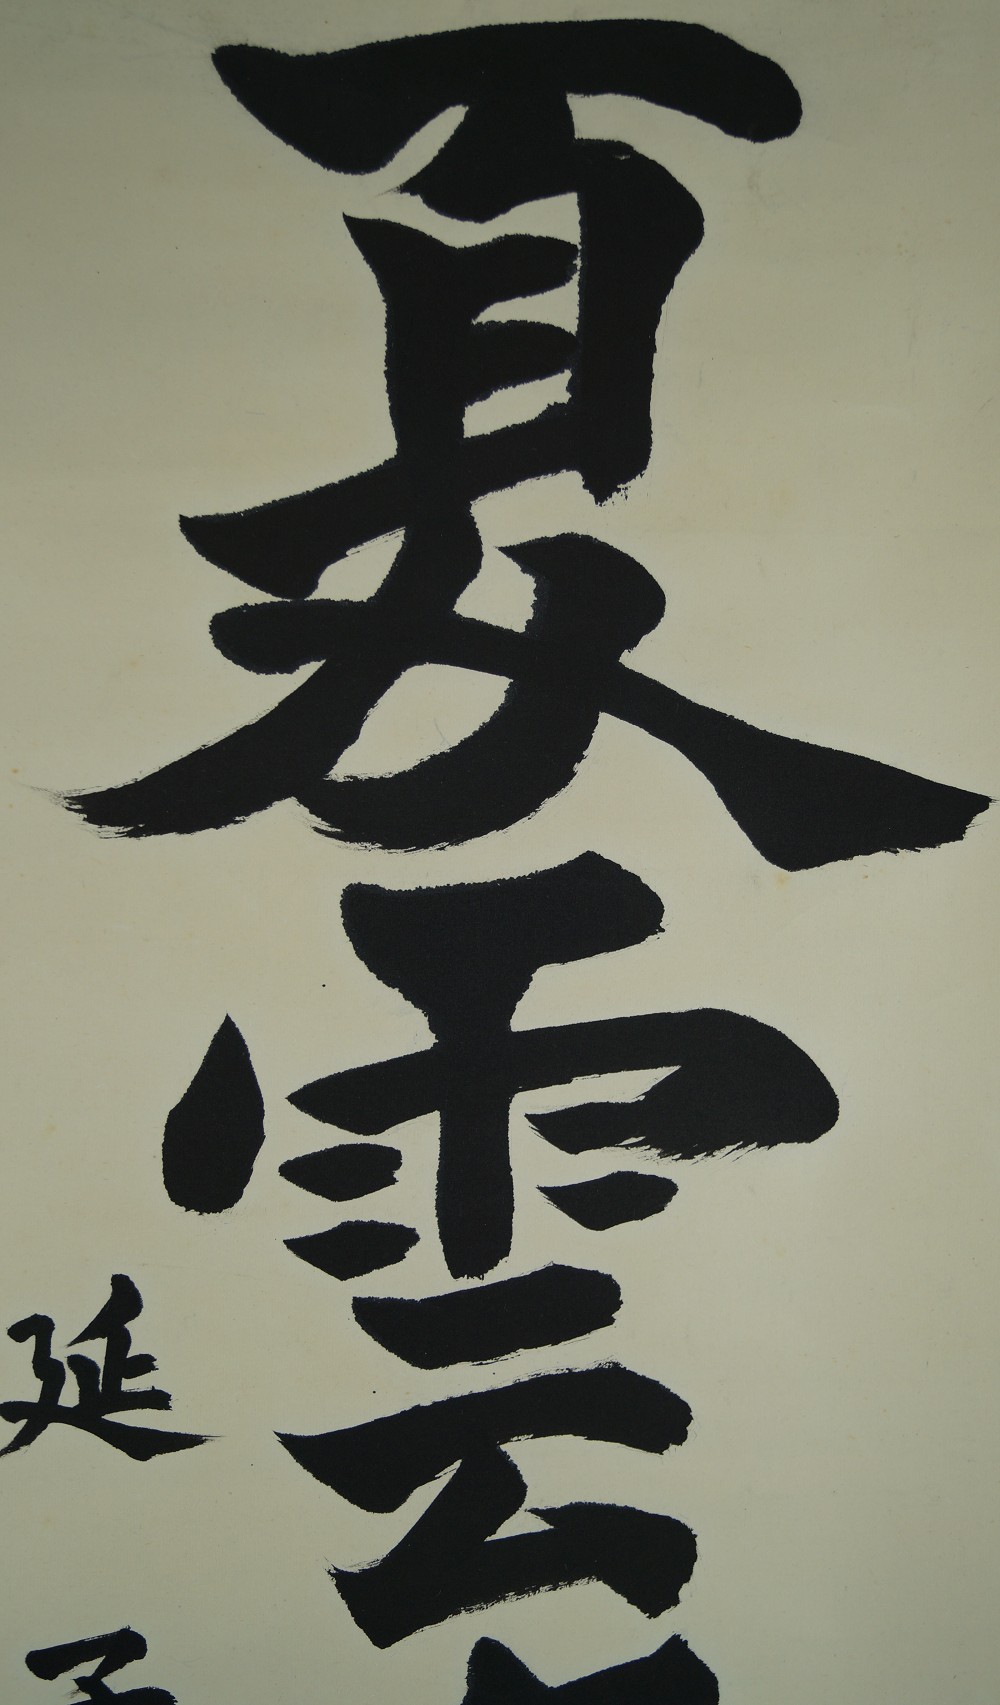 夏雲
延子